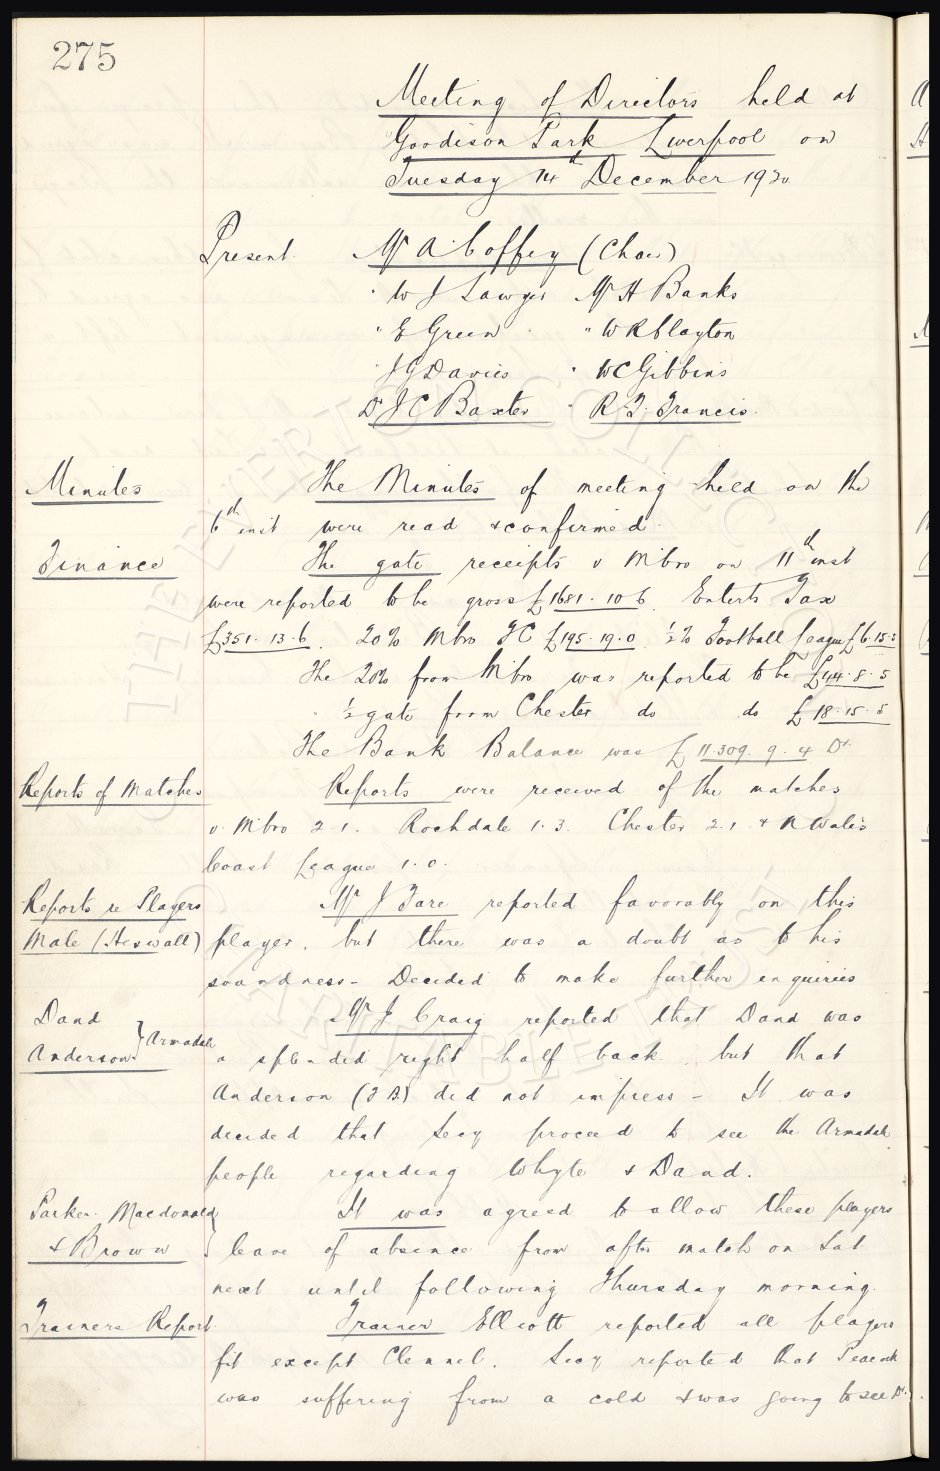 275
Meeting of Directors held at
Goodison Park Liverpool on
Tuesday 14th December 1920.
Present. Mr A Coffey (Chair)
" W J Sawyer Mr H Banks
" E Green " W R Clayton
" J G Davies " W C Gibbins
Dr J C Baxter " R. T. Francis.
Minutes The Minutes of meeting held on the
6th inst were read & confirmed.
Finance The gate receipts v M'bro on 11th inst
were reported to be gross £1681. 10. 6. Enterts Tax
£351. 13. 6. 20% Mbro FC £195. 19. 0. ½% Football League £6. 15. 5
The 20% from M'bro was reported to be £44. 8. 5
" ½ gate from Chester do do £18. 15. 5
The Bank Balance was £11.309. 9. 4 Dr.
Reports of Matches Reports were received of the matches
v. M'bro 2.1. Rochdale 1.3. Chester 2.1 & N Wales
Coast League 1.0.
Reports re Players Mr J Fare reported favorably on this
Male (Heswall) player, but there was a doubt as to his
soundness - Decided to make further enquiries
Dand
Anderson } Armadale Mr J Craig reported that Dand was
a splendid right half back. but that
Anderson (FB) did not impress - It was
decided that Secy proceed to see the Armadale
people regarding Whyte & Dand.
Parker. Macdonald
& Brown } It was agreed to allow these players
leave of absence from after match on Sat
next until following Thursday morning.
Trainers Report. Trainer Elliott reported all players
fit except Clennel. Secy reported that Peacock
was suffering from a cold & was going to see Dr.